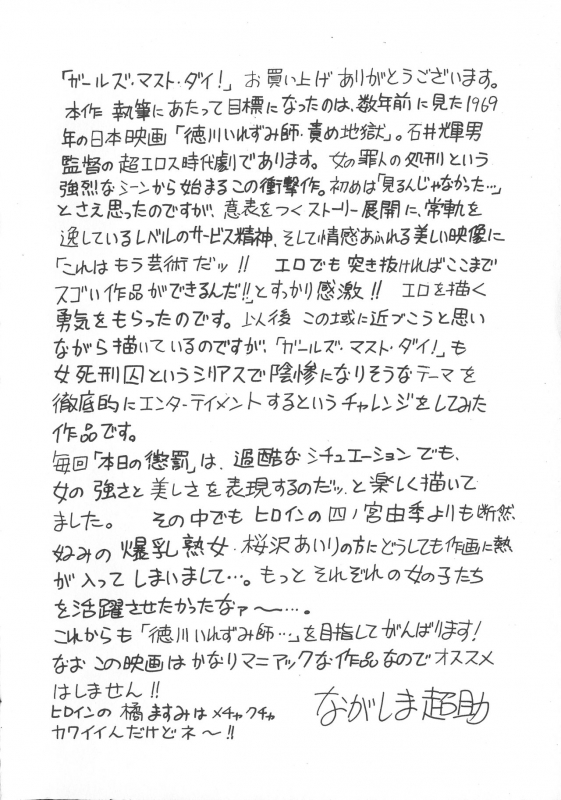 「ガールズ・マスト・ダイ!」 お買い上げ ありがとうございます。
本作 執筆にあたって目標になったのは、数年前に見た1969
年の日本映画「徳川いれずみ師・責め地獄」。石井輝男
監督の超エロス時代劇であります。女の罪人の処刑という
強烈なシーンから始まるこの衝撃作。初めは「見るんじゃなかった…」
とさえ思ったのですが、意表をつくストーリー展開に、常軌を
逸しているレベルのサービス精神、そして情感あふれる美しい映像に
「これはもう芸術だッ!! エロでも突き抜ければここまで
スゴい作品ができるんだ!!」とすっかり感激!! エロを描く
勇気をもらったのです。以後 この域に近づこうと思い
ながら描いているのですが、「ガールズ・マスト・ダイ!」も
女死刑囚というシリアスで陰惨になりそうなテーマを
徹底的にエンターテイメントするという チャレンジをしてみた
作品です。
毎回「本日の懲罰」は、過酷なシチュエーションでも、
女の強さと美しさを表現するのだッ、と楽しく描いて
ました。 その中でも ヒロインの四ノ宮由季よりも断然
好みの爆乳熟女・桜沢あいりの方にどうしても作画に熱
が入ってしまいまして…。もっとそれぞれの女の子たち
を活躍させたかったなァ〜…。
これからも「徳川いれずみ師…」を目指してがんばります!
なお この映画はかなりマニアックな作品なのでオススメ
はしません!!
ヒロインの 橘ますみはメチャクチャ
カワイイんだけどネ〜!!
ながしま超助